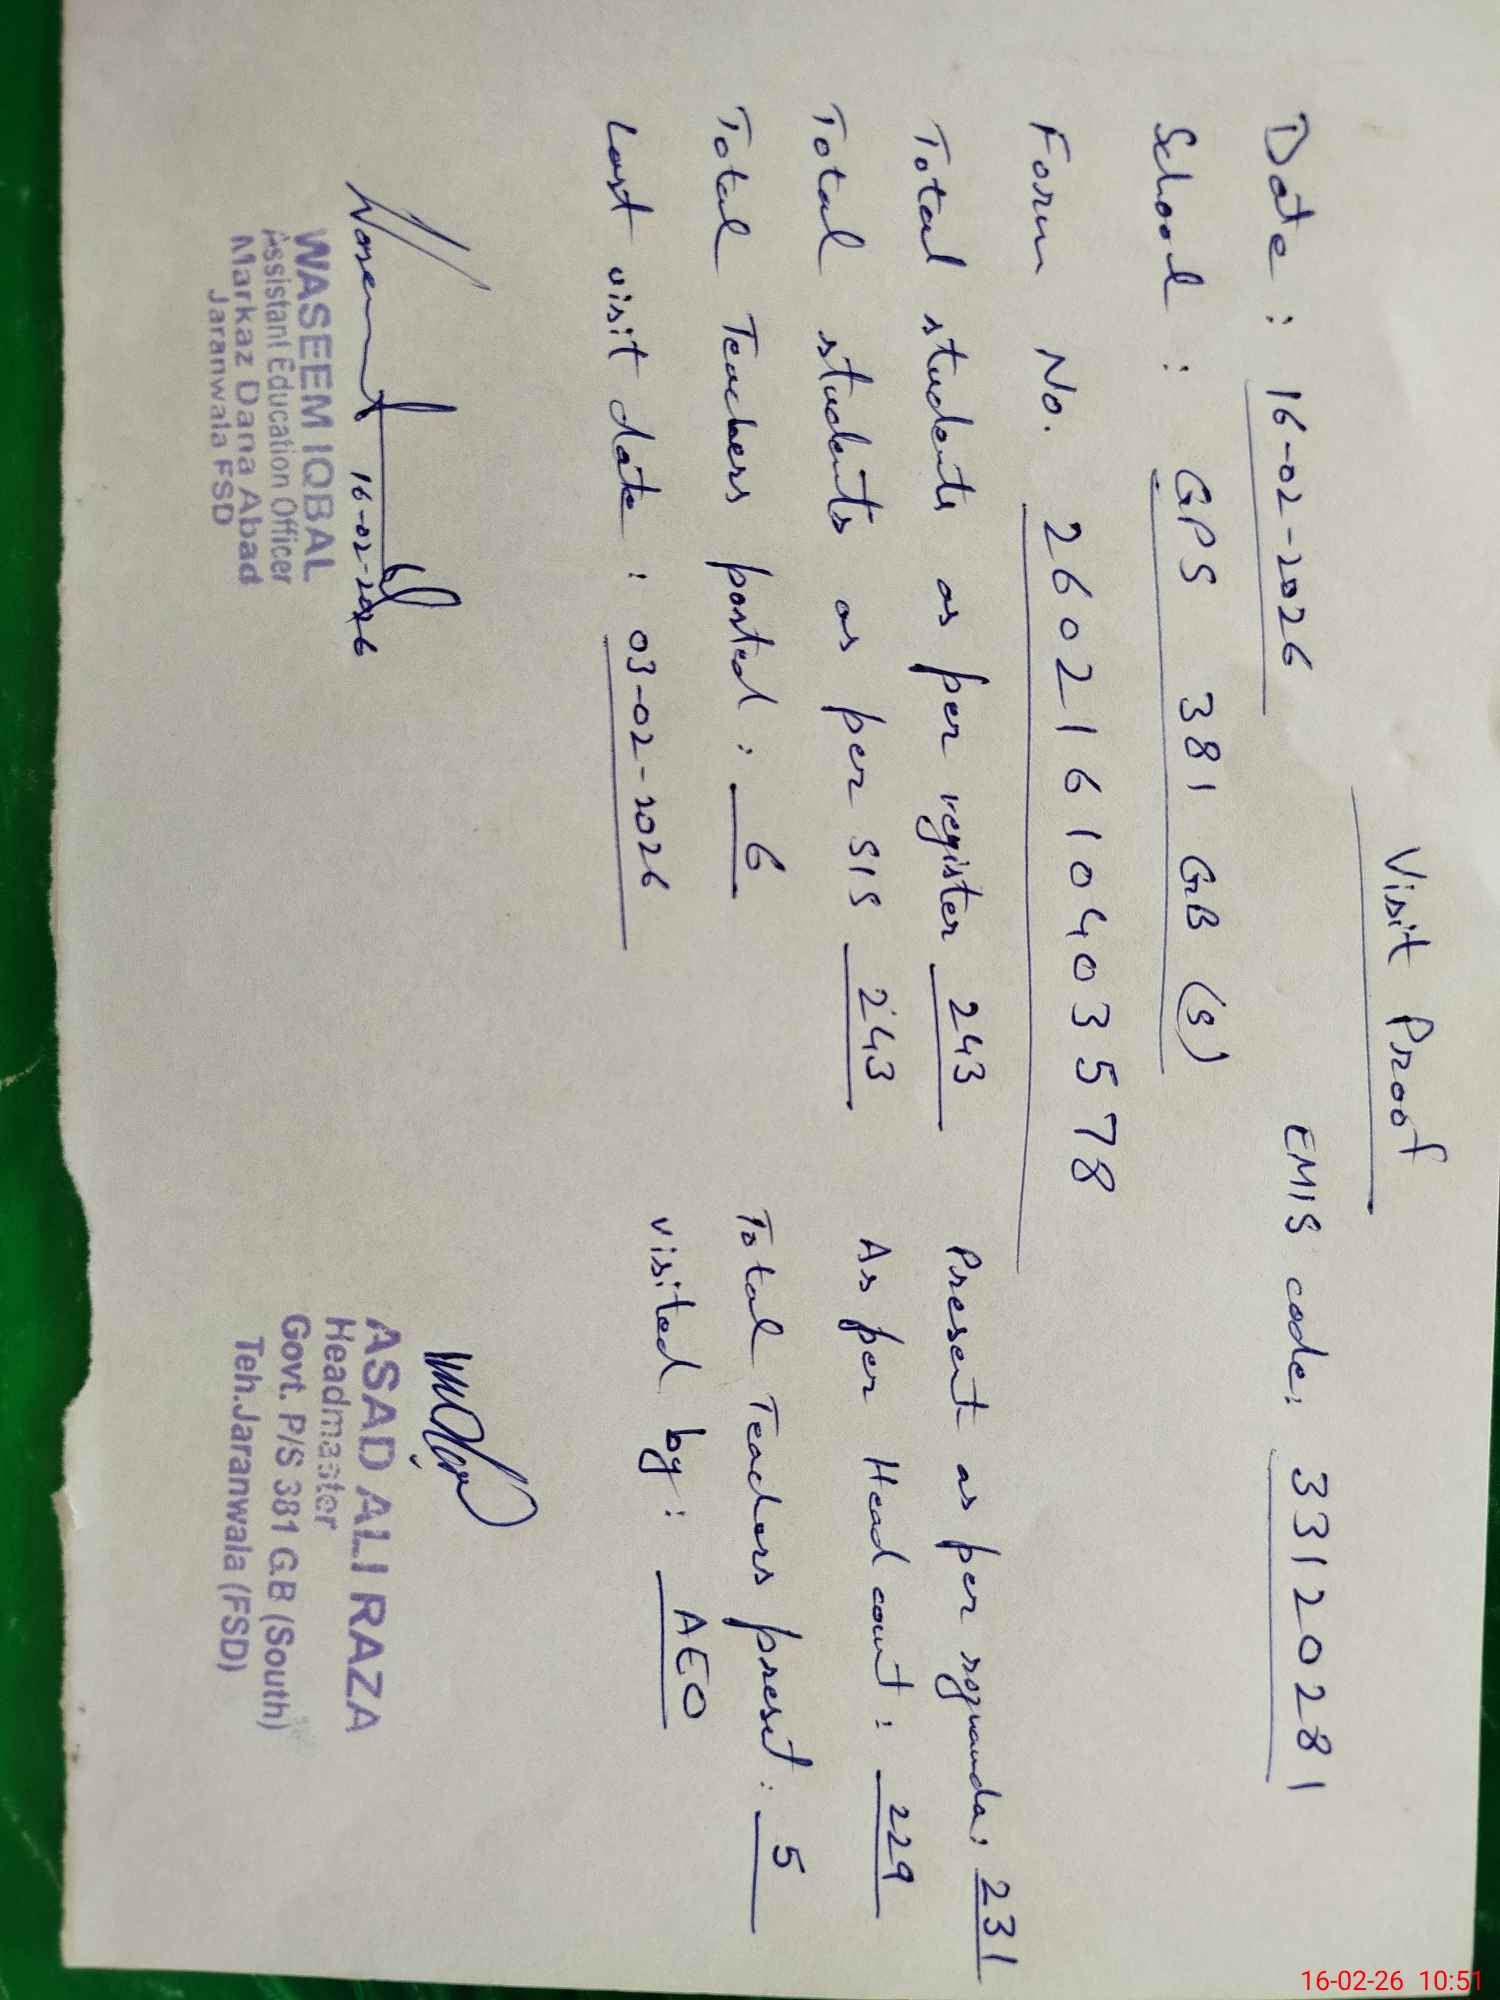 Visit Proof
Date : 16-02-2026 EMIS code: 33120281
School : GPS 381 GB (S)
Form No. 260216104035 78
Total students as per register 243 Present as per rognamda: 231
Total students as per SIS 243 As per Head count : 229
Total Teachers posted : 6 Total Teachers presit : 5
Last visit date : 03-02-2026 visited by : AEO
16-02-2026
WASEEM IQBAL
Assistant Education Officer
Markaz Dana Abad
Jaranwala FSD
ASAD ALI RAZA
Headmaster
Govt. P/S 381 G.B (South)
Teh.Jaranwala (FSD)
16-02-26 10:51